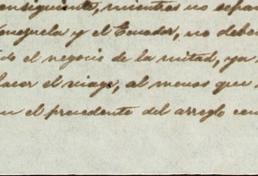 consiguiente, mientras no
Venezuela y el Ecuador, no
el negocio de la mitad, ya
hacer el viage, al menos que
el precedente del arreglo con